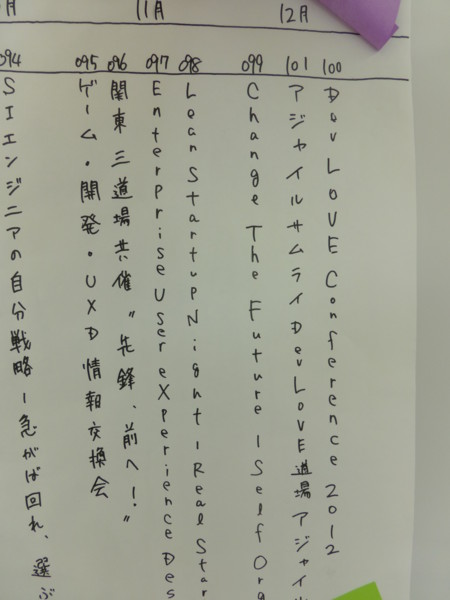 11月
12月
094
095
096
097
098
099
101
100
SIエンジニアの自分戦略ー急がば回れ、選ぶ
ゲーム・開発・UXD情報交換会
関東三道場共催〝先鋒、前へ！〟
Enterprise User eXperience Des
Lean Startup Night - Real Star
Change The Future - Self Org
アジャイルサムライDevLOVE道場アジャイ
DevLOVE Conference 2012